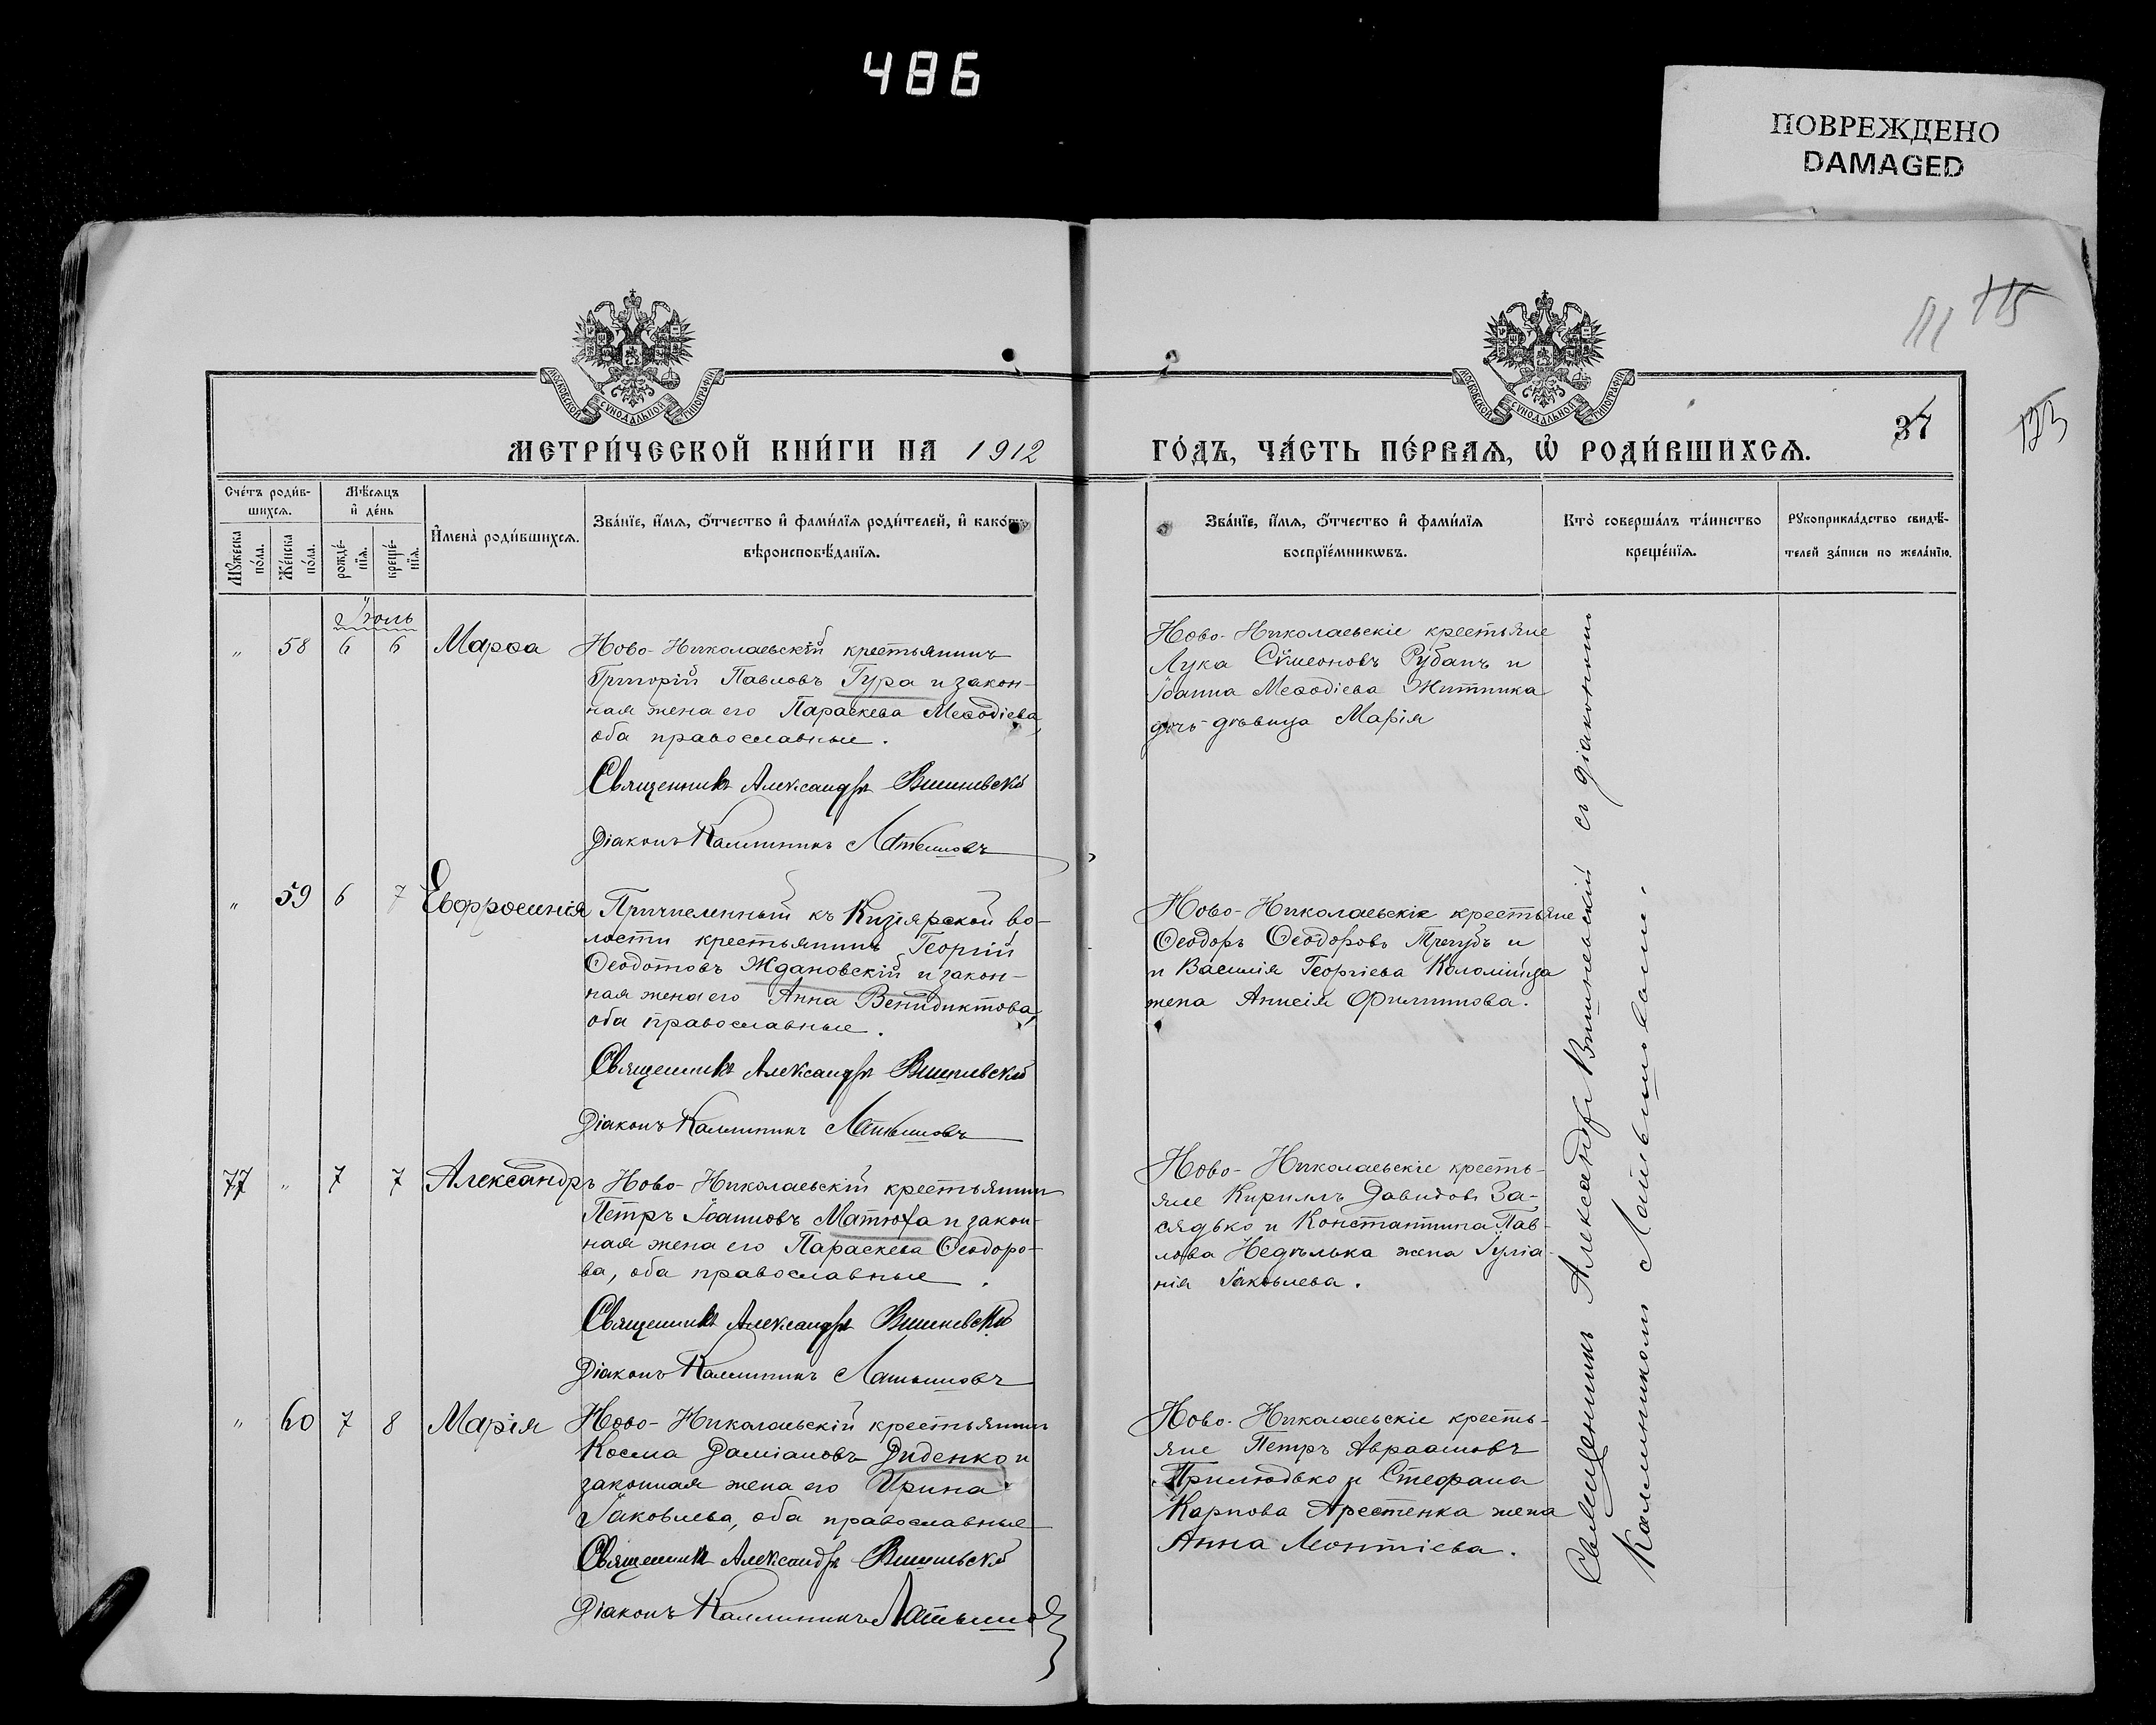 486
ПОВРЕЖДЕНО
DAMAGED
111 115
123
37
МОСКОВСКОЙ СѴНОДАЛЬНОЙ ТИПОГРАФІИ
МОСКОВСКОЙ СѴНОДАЛЬНОЙ ТИПОГРАФІИ
МЕТРИ́ЧЕСКОЙ КНИ́ГИ НА 1912
ГО́ДЪ, ЧА́СТЬ ПЕ́РВАѦ, Ѡ҆ РОДИ́ВШИХСѦ.
Сче́тъ роди́в-
шихсѧ.
Мꙋ́жеска
по́ла.
Же́нска
по́ла.
Мѣ́сѧцъ
и҆ де́нь
рожде́-
нїѧ.
креще́-
нїѧ.
И҆мена̀ роди́вшихсѧ.
Зва́нїе, и҆́мѧ, ѻ҆́тчество и҆ фами́лїѧ роди́телей, и҆ како́гѡ
вѣроисповѣ́данїѧ.
Зва́нїе, и҆́мѧ, ѻ҆́тчество и҆ фами́лїѧ
воспрїе́мникѡвъ.
Кто̀ соверша́лъ та́инство
креще́нїѧ.
Рꙋкоприкла́дство свидѣ́-
телей за́писи по жела́нїю.
Іюль
„ 58 6 6 Марѳа
Ново-Николаевскій крестьянинъ
Григорій Павловъ Гура и закон-
ная жена его Параскева Меѳодіева,
оба православные.
Священникъ Александръ Вишневскій
Діаконъ Каллиникъ Латышовъ
Ново-Николаевскіе крестьяне
Лука Сѵмеоновъ Рубанъ и
Іоанна Меѳодіева Житника
дочь-дѣвица Марія
„ 59 6 7 Евфросинія
Причисленный къ Кизіярской во-
лости крестьянинъ Георгій
Ѳеодотовъ Ждановскій и закон-
ная жена его Анна Венидиктова,
оба православные.
Священникъ Александръ Вишневскій
Діаконъ Каллиникъ Латышовъ
Ново-Николаевскіе крестьяне
Ѳеодоръ Ѳеодоровъ Трегубъ и
и Василія Георгіева Коломійца
жена Анисія Филиппова.
77 „ 7 7 Александръ
Ново-Николаевскій крестьянинъ
Петръ Іоанновъ Матюха и закон-
ная жена его Параскева Ѳеодоро-
ва, оба православные.
Священникъ Александръ Вишневскій
Діаконъ Каллиникъ Латышовъ
Ново-Николаевскіе кресть-
яне Кириллъ Давидовъ За-
сядько и Константина Пав-
лова Недѣлька жена Іуліа-
нія Іаковлева.
„ 60 7 8 Марія
Ново-Николаевскій крестьянинъ
Косма Даміановъ Диденко и
законная жена его Ирина
Іаковлева, оба православные
Священникъ Александръ Вишневскій
Діаконъ Каллиникъ Латышовъ
Ново-Николаевскіе кресть-
яне Петръ Авраамовъ
Прилюдько и Стефана
Карпова Арестенка жена
Анна Леонтіева.
Священникъ Александръ Вишневскій съ діакономъ
Каллиникомъ Латышовымъ.